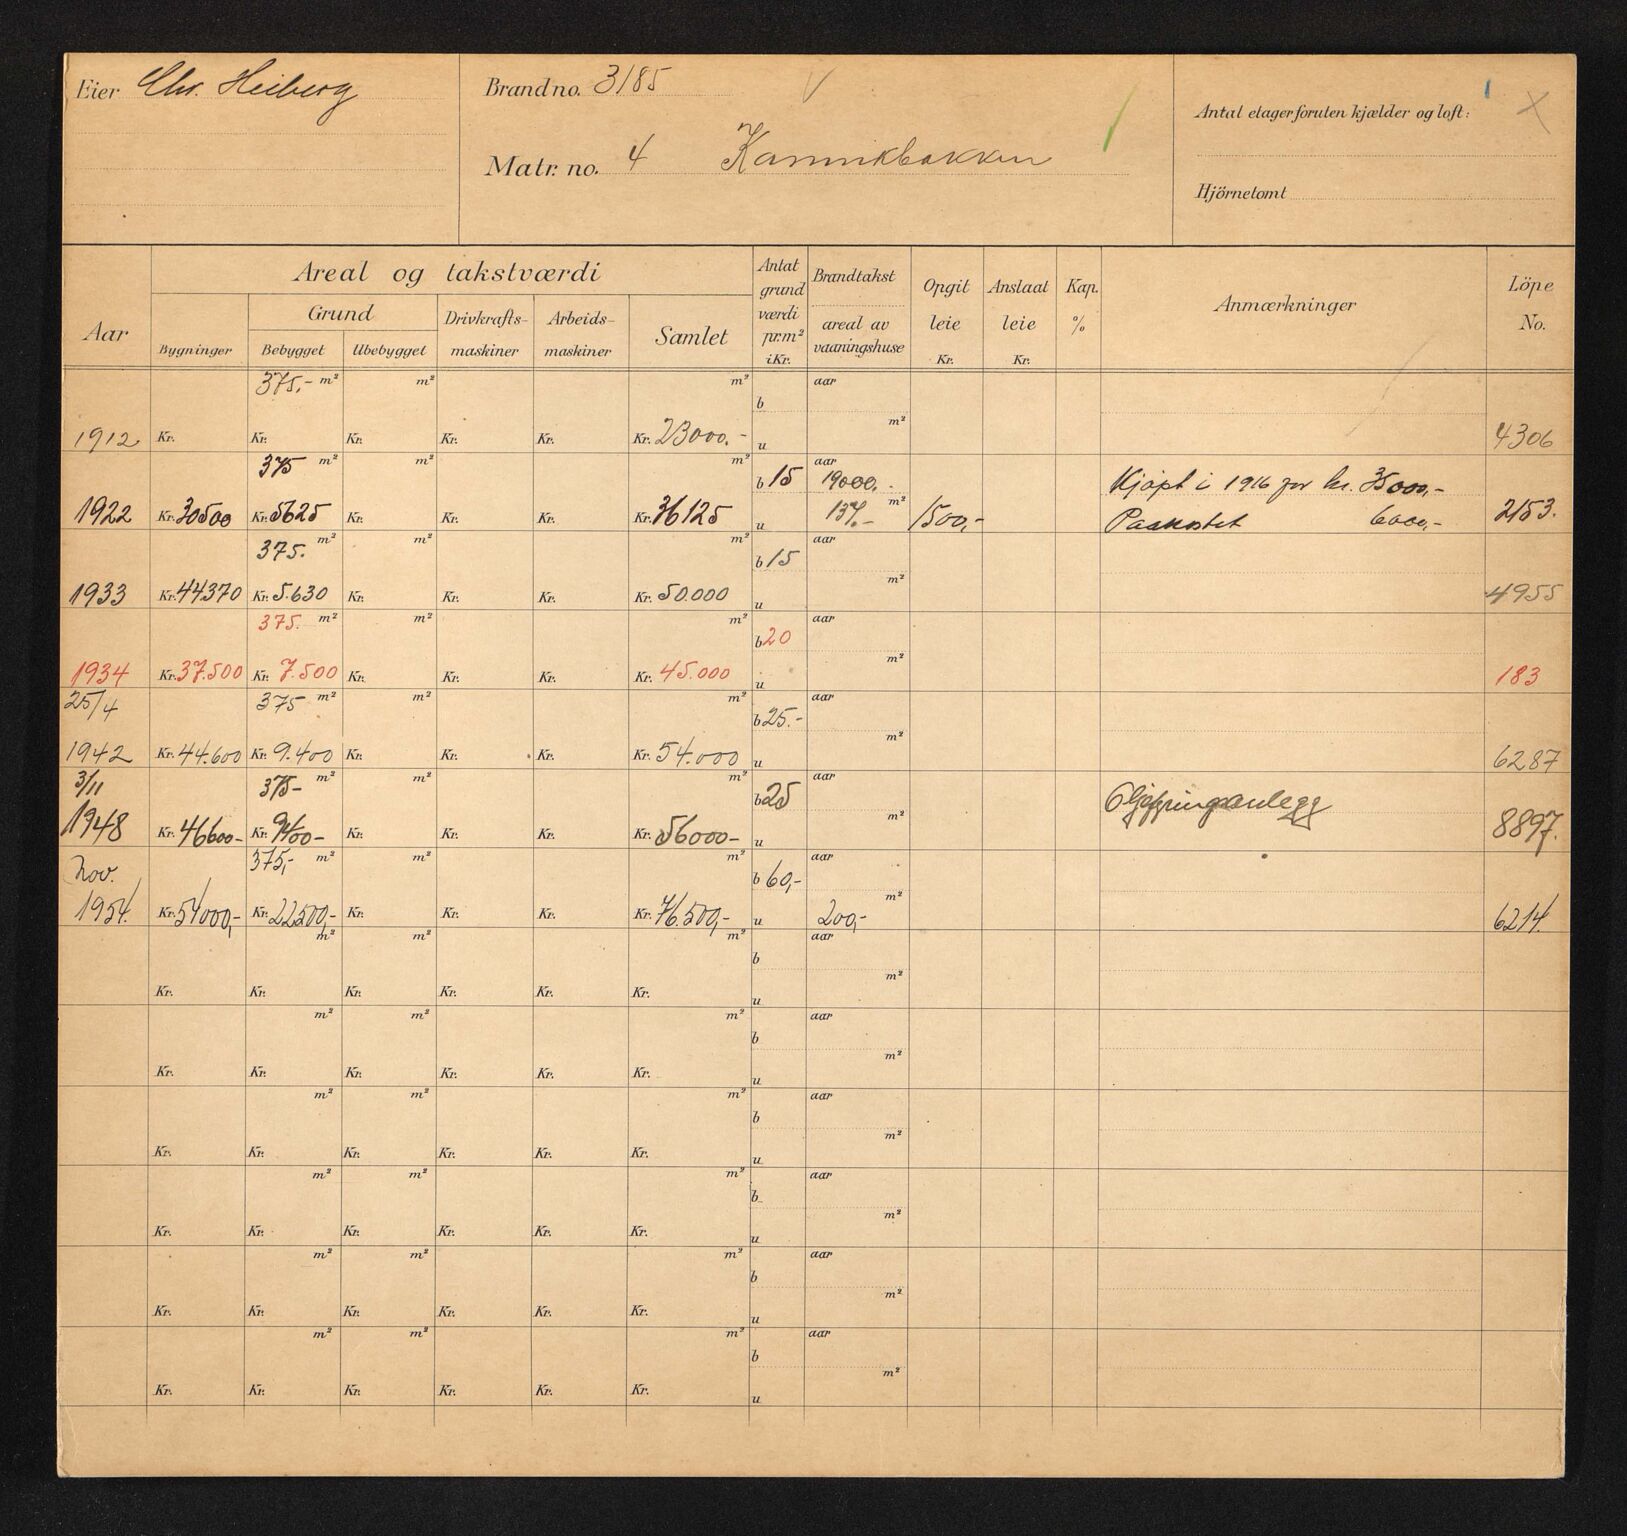 Eier Chr. Heiberg
Brandno. 3185
Matr. no. 4 Kannikbakken
Antal etager foruten kjælder og loft:
Hjörnetomt
Aar
Areal og takstværdi
Bygninger
Grund
Bebygget Ubebygget
Drivkrafts-maskiner
Arbeids-maskiner
Samlet
Antat grund værdi pr.m² i Kr.
Brandtakst
areal av vaaningshuse
Opgit leie Kr.
Anslaat leie Kr.
Kap. %
Anmærkninger
Löpe No.
375,- m² m² m² b aar
1912 Kr. Kr. Kr. Kr. Kr. Kr. 23000.- u m² 4306
375 m² m² m² b 15 aar 19000.- Kjöpt i 1916 for kr. 35000,-
1922 Kr. 30500 Kr. 5625 Kr. Kr. Kr. Kr. 36125 u 137.- m² 1500,- Paakostet 6000,- 2153.
375. m² m² m² b 15 aar
1933 Kr. 44370 Kr. 5.630 Kr. Kr. Kr. Kr. 50.000 u m² 4955
375. m² m² m² b 20 aar
1934 Kr. 37.500 Kr. 7.500 Kr. Kr. Kr. Kr. 45.000 u m² 183
25/4 375 m² m² m² b 25.- aar
1942 Kr. 44.600 Kr. 9.400 Kr. Kr. Kr. Kr. 54.000 u m² 6287
3/11 375- m² m² m² b 25 aar Oljefyringsanlegg
1948 Kr. 46600- Kr. 9400- Kr. Kr. Kr. Kr. 56000- u m² 8897.
Nov. 375,- m² m² m² b 60,- aar
1954. Kr. 54000,- Kr. 22500,- Kr. Kr. Kr. Kr. 76.500,- u 200,- m² 6214.
m² m² m² b aar
Kr. Kr. Kr. Kr. Kr. Kr. u m²
m² m² m² b aar
Kr. Kr. Kr. Kr. Kr. Kr. u m²
m² m² m² b aar
Kr. Kr. Kr. Kr. Kr. Kr. u m²
m² m² m² b aar
Kr. Kr. Kr. Kr. Kr. Kr. u m²
m² m² m² b aar
Kr. Kr. Kr. Kr. Kr. Kr. u m²
m² m² m² b aar
Kr. Kr. Kr. Kr. Kr. Kr. u m²